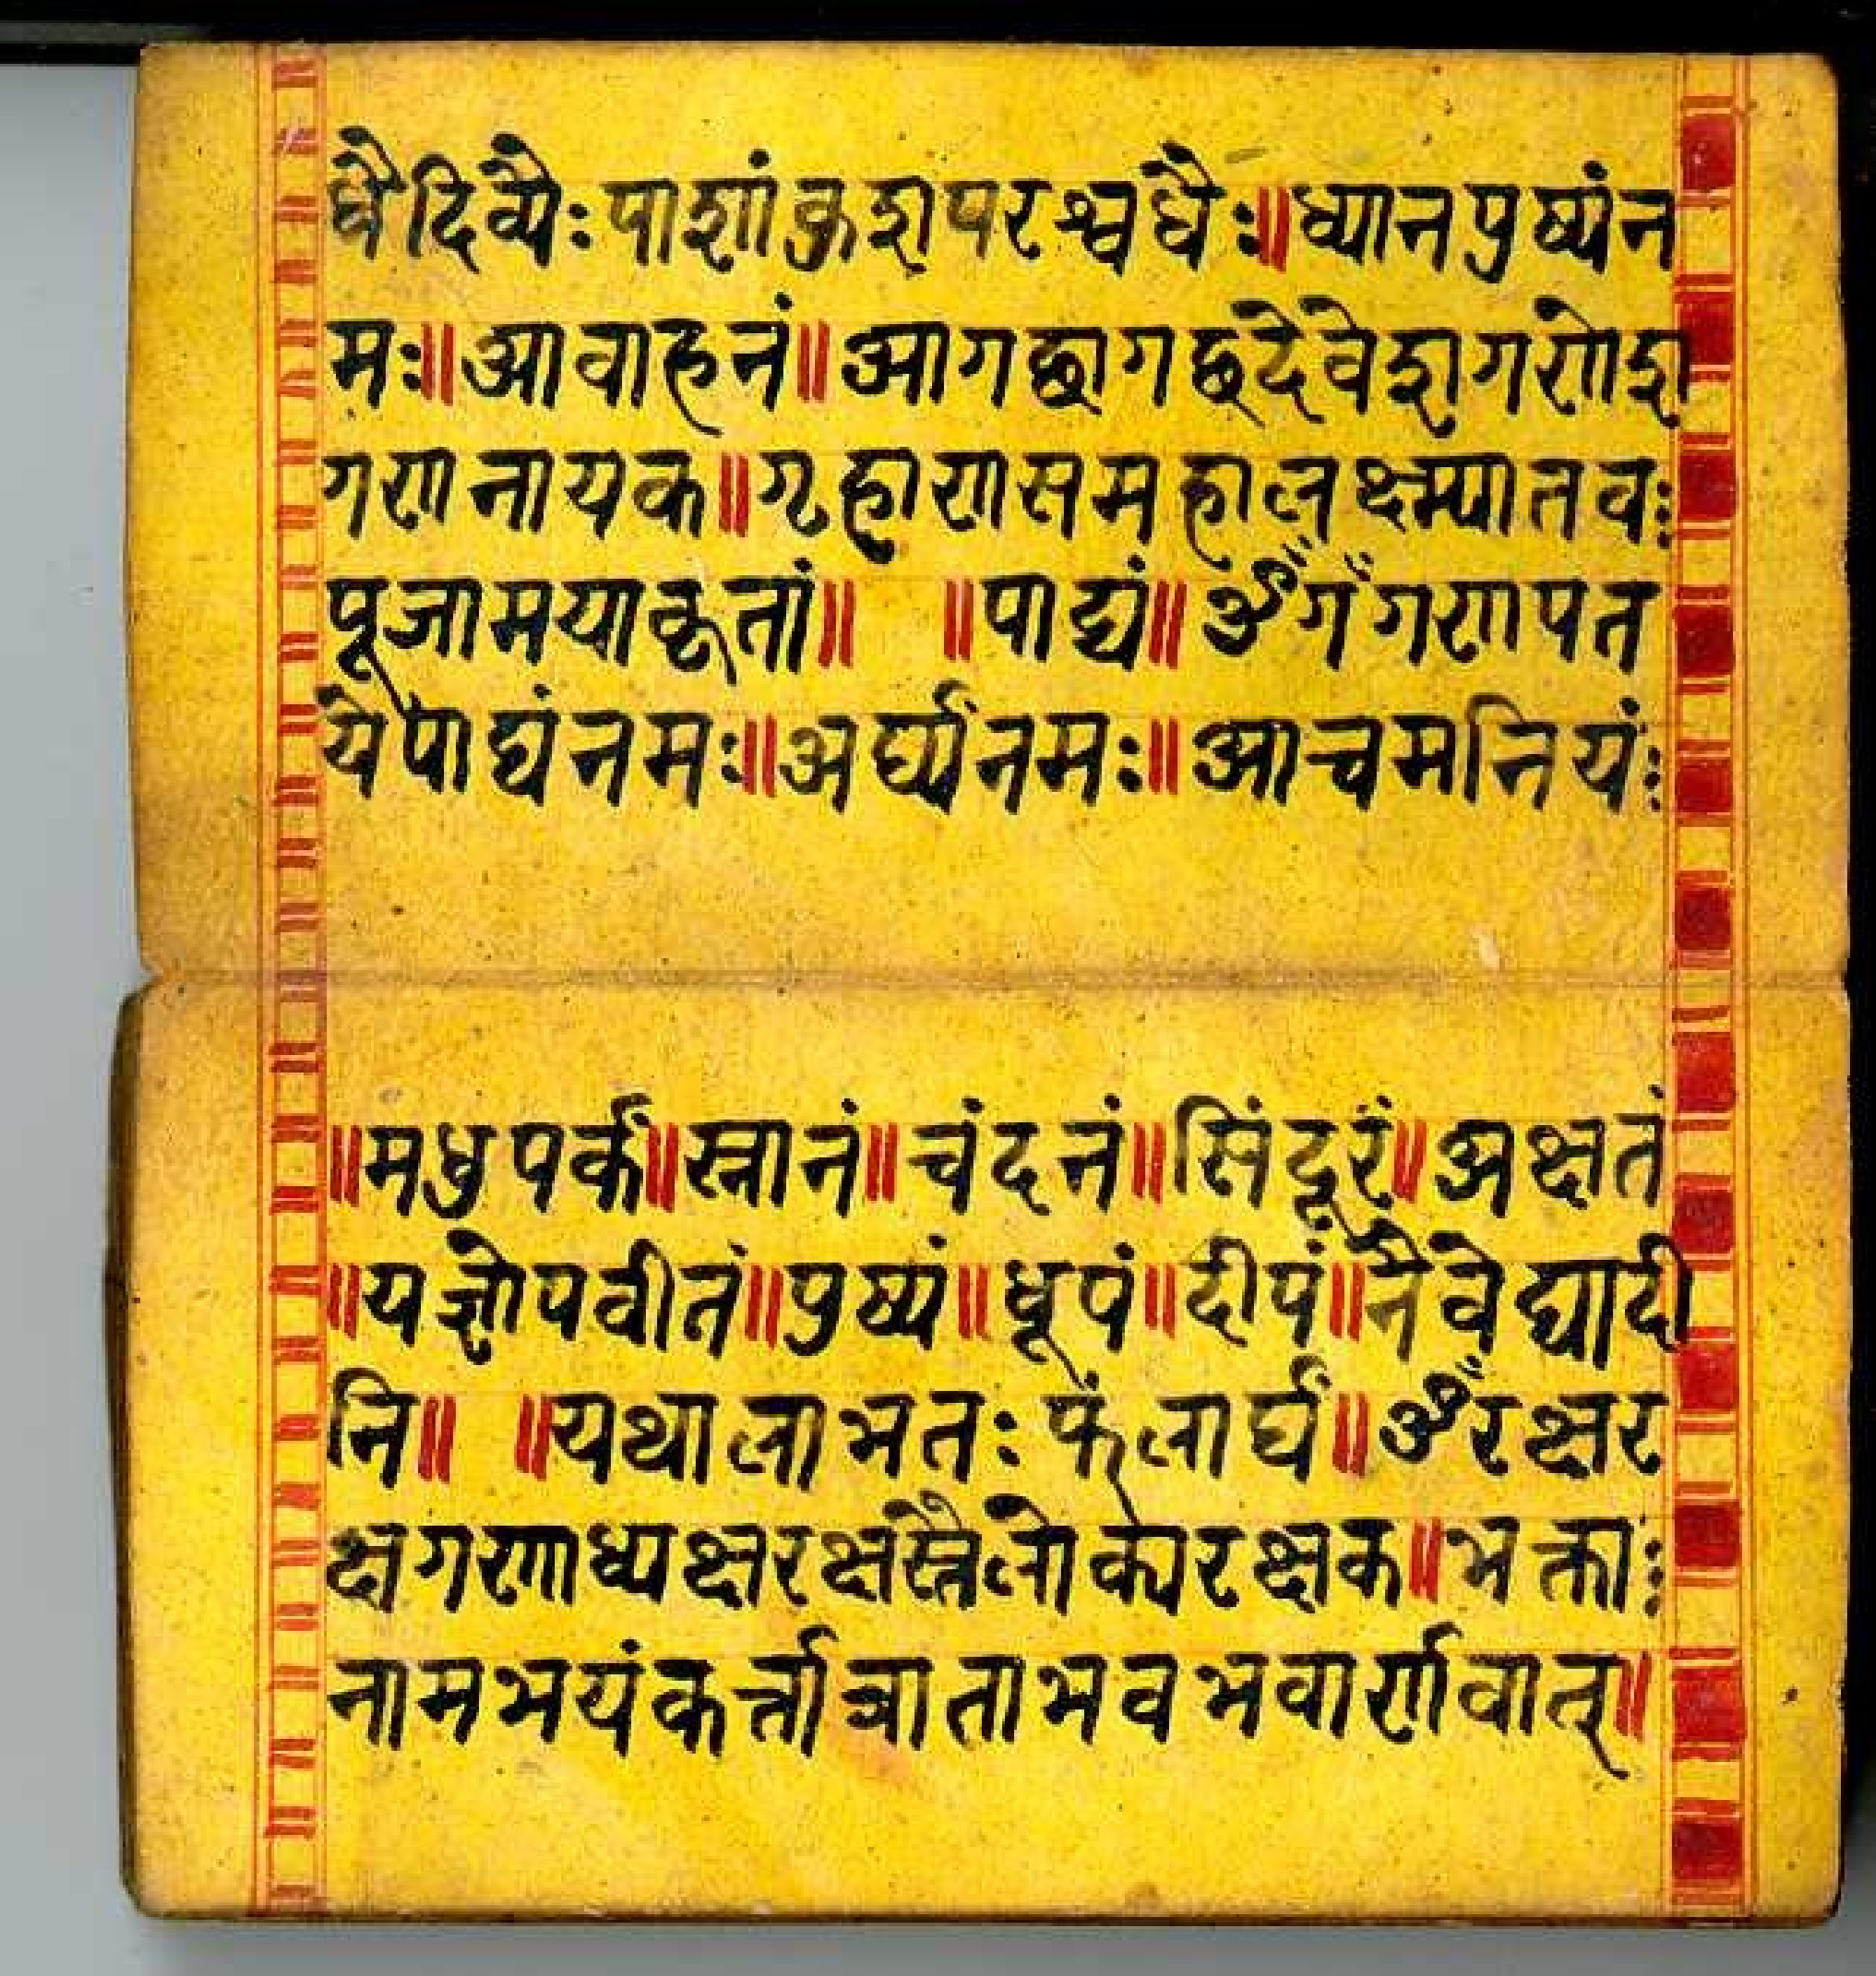 धैर्दिव्यैः पाशांकुशपरश्वधैः॥ध्यानपुष्पंन
मः॥आवाहनं॥आगछागछदेवेशगणेश
गणनायक॥गृहाणसमहालक्ष्म्यातवः
पूजामयाकृतां॥ ॥पाद्यं॥ॐगँगणपत
येपाद्यंनमः॥अर्घ्यंनमः॥आचमनियंः
॥मधुपर्कं॥स्नानं॥चंदनं॥सिंदूरं॥अक्षतं
॥यज्ञोपवीतं॥पुष्पं॥धूपं॥दीपं॥नैवेद्यादी
नि॥ ॥यथालाभतः फंलार्घं॥ॐरक्षर
क्षगणाध्यक्षरक्षस्त्रैलोक्यरक्षक॥भक्ताः
नामभयंकर्त्तात्राताभवभवार्णवात्॥